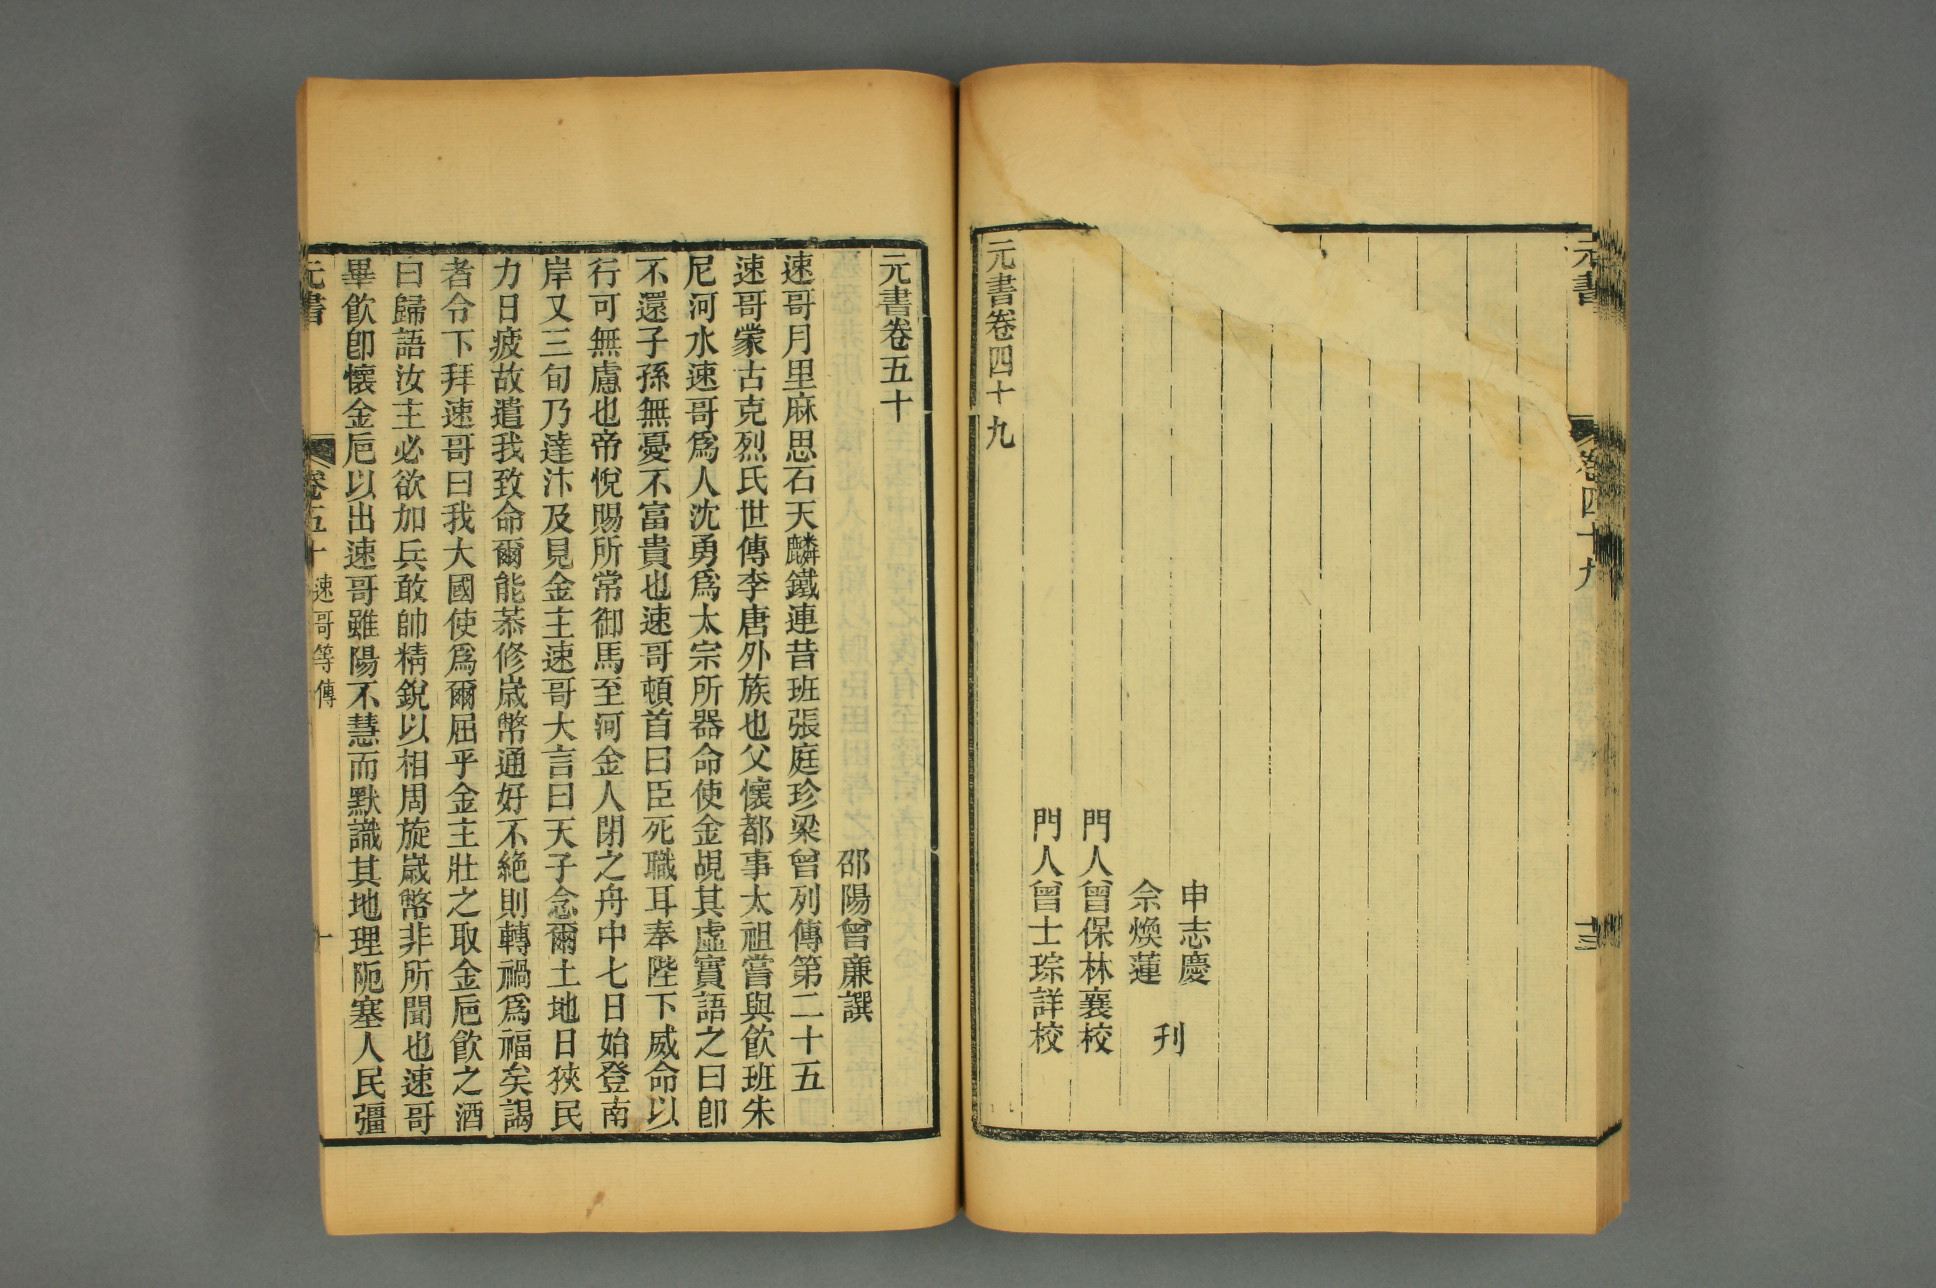 元書
卷四十九
十三
申志慶
佘煥蓮
刊
門人曾保林襄校
門人曾士琮詳校
元書卷四十九
元書卷五十
邵陽曾廉譔
速哥月里麻思石天麟鐵連昔班張庭珍梁曾列傳第二十五
速哥蒙古克烈氏世傳李唐外族也父懷都事太祖嘗與飮班朱
尼河水速哥爲人沈勇爲太宗所器命使金覘其虛實語之曰卽
不還子孫無憂不富貴也速哥頓首曰臣死職耳奉陛下威命以
行可無慮也帝悅賜所常御馬至河金人閉之舟中七日始登南
岸又三旬乃達汴及見金主速哥大言曰天子念爾土地日狹民
力日疲故遣我致命爾能恭修歲幣通好不絶則轉禍爲福矣謁
者令下拜速哥曰我大國使爲爾屈乎金主壯之取金巵飮之酒
曰歸語汝主必欲加兵敢帥精銳以相周旋歲幣非所聞也速哥
畢飮卽懷金巵以出速哥雖陽不慧而默識其地理阨塞人民彊
元書
卷五十
速哥等傳
一